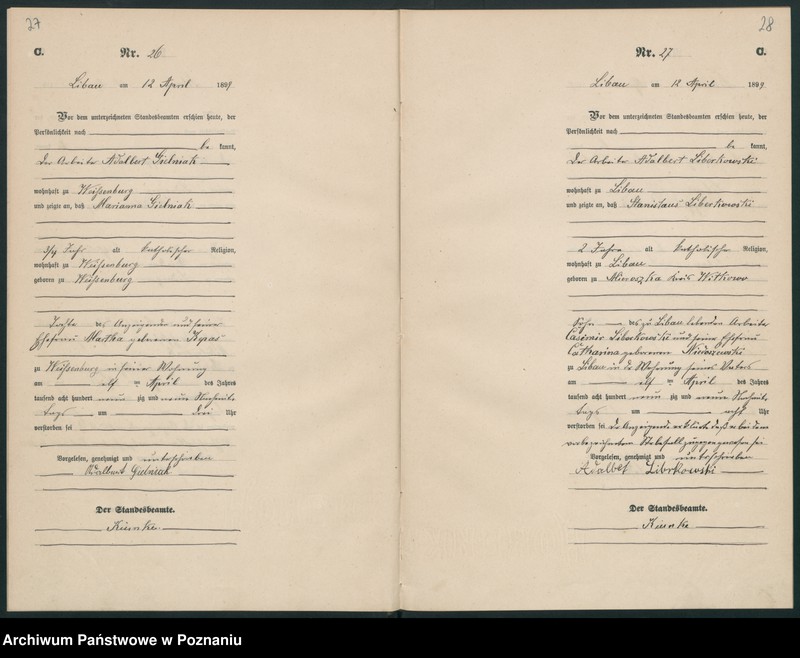 27
C.
Nr. 26
Libau am 12 April 1899
Vor dem unterzeichneten Standesbeamten erschien heute, der
Persönlichkeit nach
be kannt,
Der Arbeiter Adalbert Gielniak
wohnhaft zu Weißenburg
und zeigte an, daß Marianna Gielniak
3/4 Jahr alt katholischer Religion,
wohnhaft zu Weißenburg
geboren zu Weißenburg
Tochter des Anzeigenden und seiner
Ehefrau Martha geborenen
zu Weißenburg in seiner Wohnung
am elf ten April des Jahres
tausend acht hundert neun zig und neun Nachmit
tags um drei Uhr
verstorben sei
Vorgelesen, genehmigt und unterschrieben
Adalbert Gielniak
Der Standesbeamte.
Kiemke
28
Nr. 27
C.
Libau am 12 April 1899
Vor dem unterzeichneten Standesbeamten erschien heute, der
Persönlichkeit nach
be kannt,
Der Arbeiter Adalbert Liberkowski
wohnhaft zu Libau
und zeigte an, daß Stanislaus Liberkowski
2 Jahre alt katholischer Religion,
wohnhaft zu Libau
geboren zu Kreis Witkowo
Sohn des zu Libau lebenden Arbeiter
Casimir Liberkowski und seiner Ehefrau
Catharina geborenen
zu Libau in der Wohnung seines Vaters
am elf ten April des Jahres
tausend acht hundert neun zig und neun Nachmit
tags um acht Uhr
verstorben sei Der Anzeigende erklärt daß er bei dem
vorbezeichneten Sterbefall zugegen gewesen sei
Vorgelesen, genehmigt und unterschrieben
Adalbet Librkowski
Der Standesbeamte.
Kiemke
Archiwum Państwowe w Poznaniu